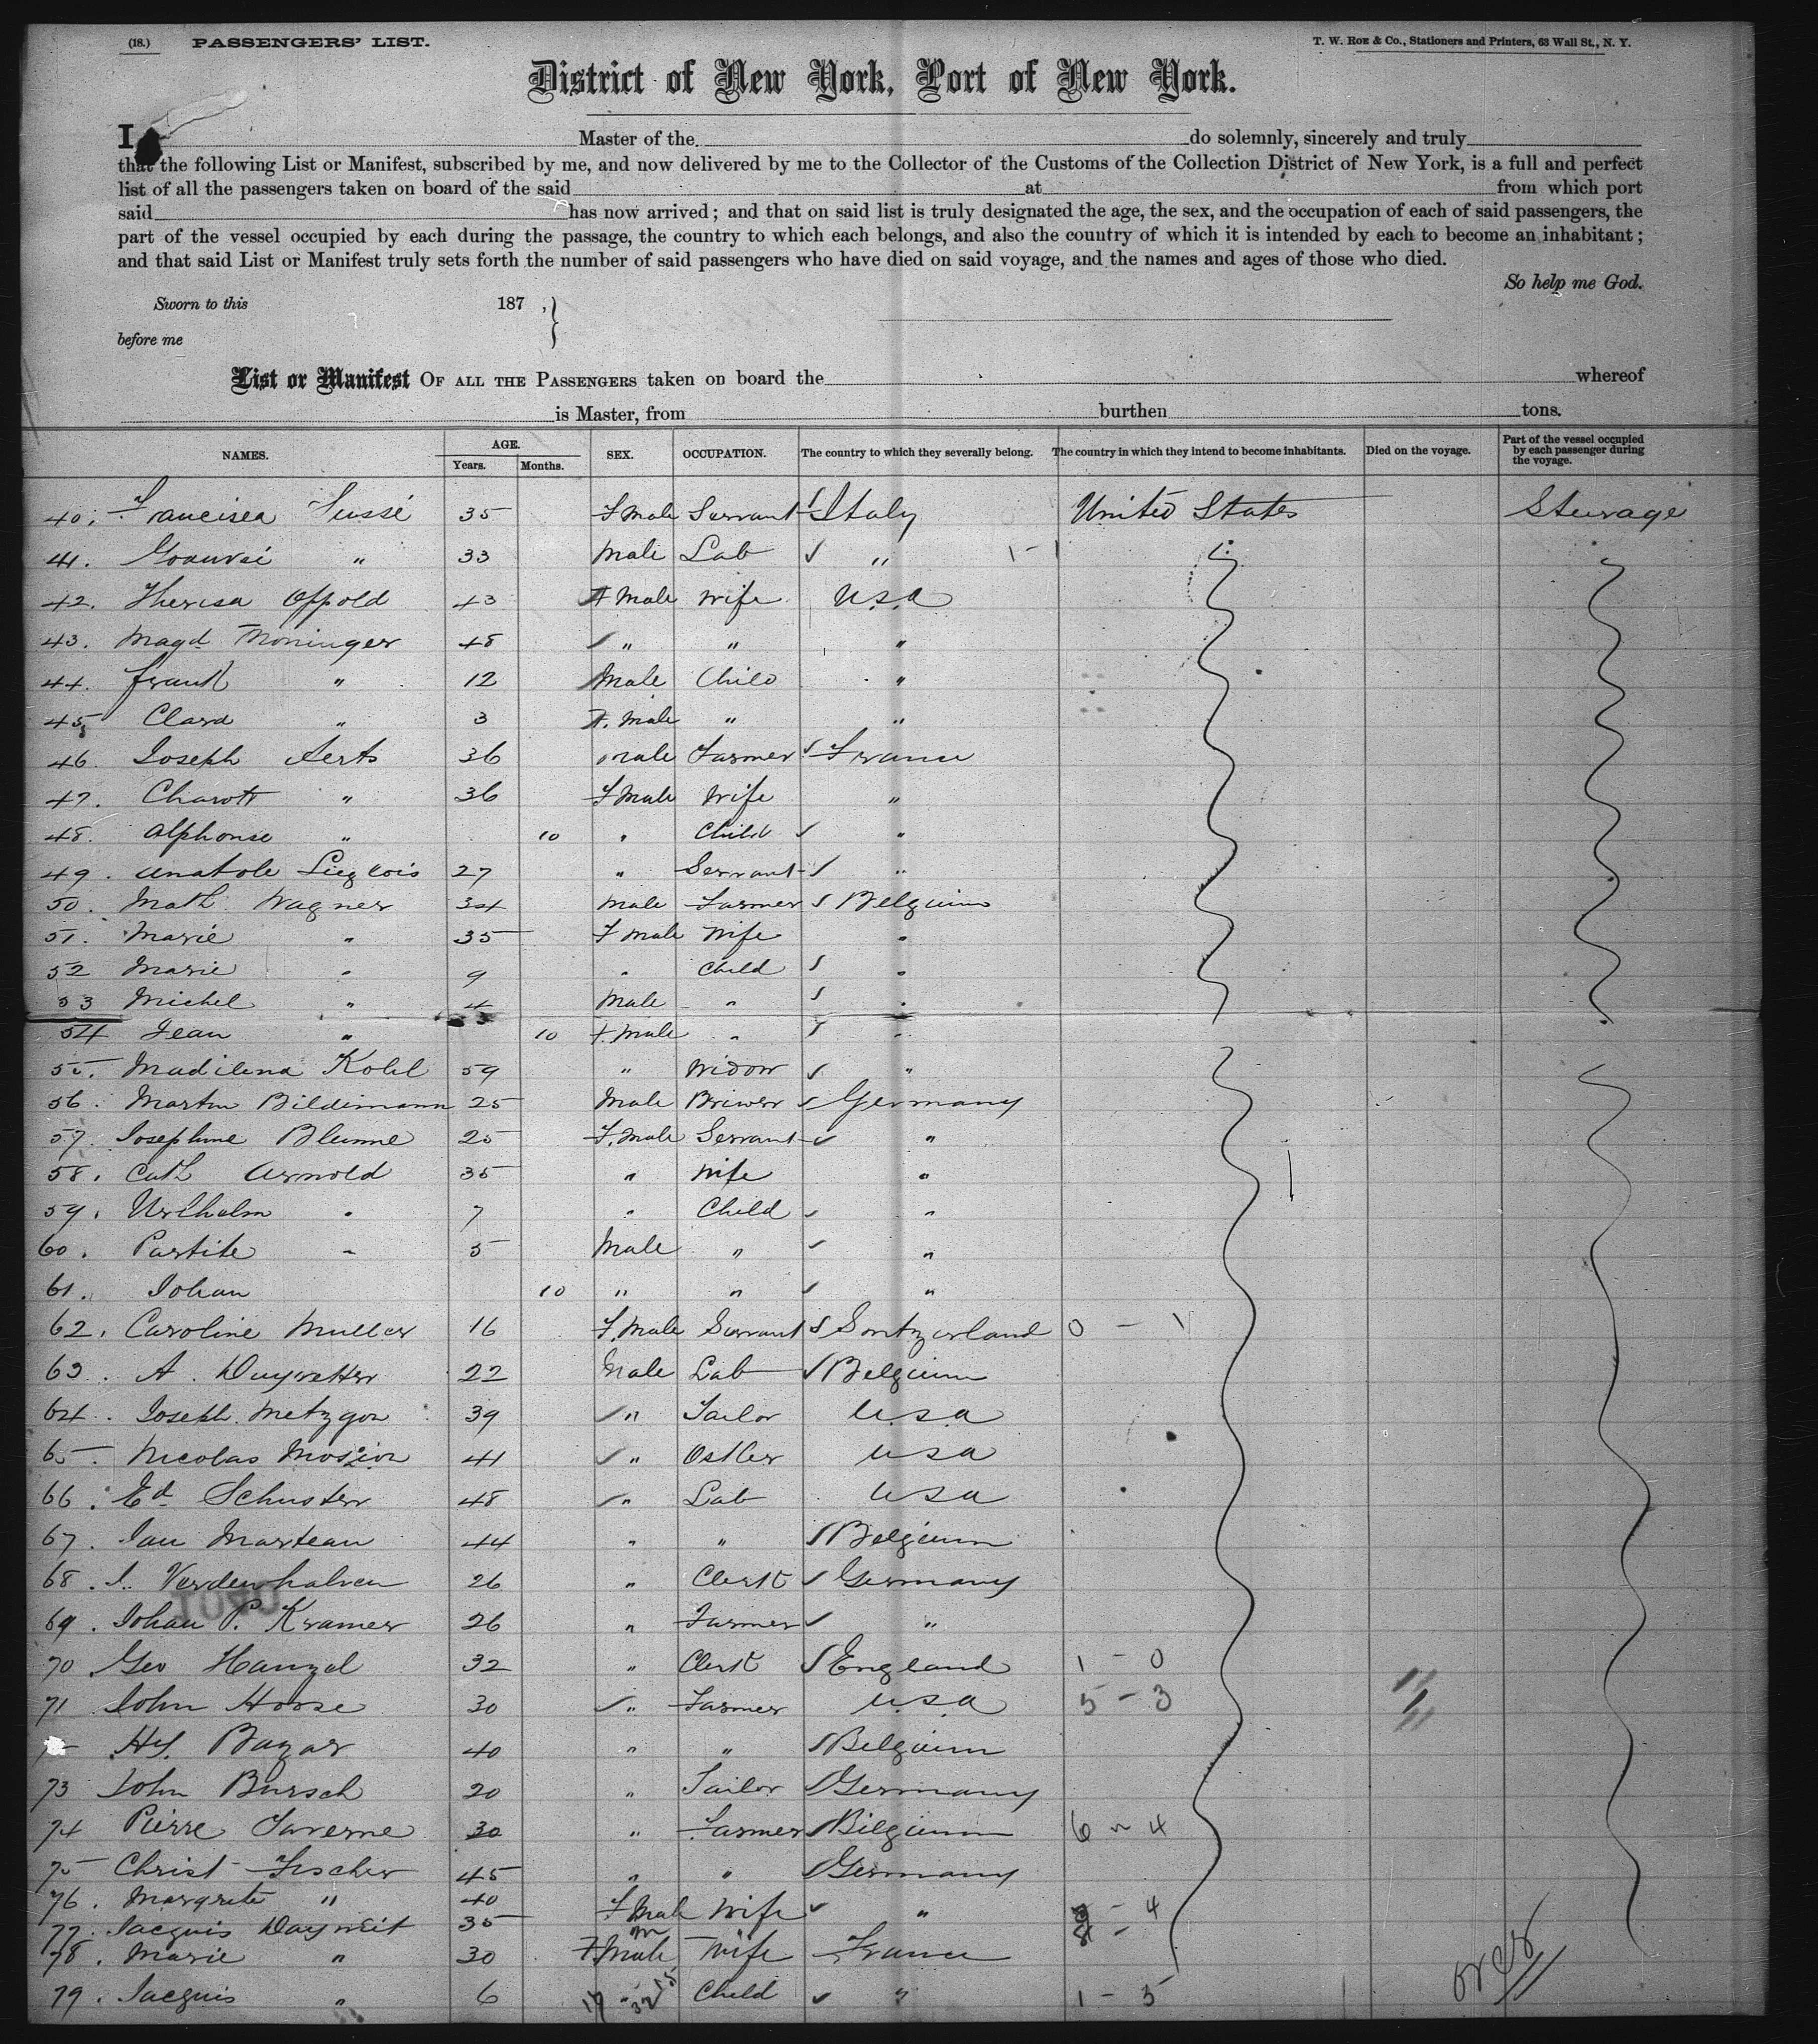 (18.) PASSENGERS' LIST. T. W. ROE & CO., Stationers and Printers, 63 Wall St., N. Y.
District of New York, Port of New York.
I Master of the do solemnly, sincerely and truly
that the following List or Manifest, subscribed by me, and now delivered by me to the Collector of the Customs of the Collection District of New York, is a full and perfect
list of all the passengers taken on board of the said at from which port
said has now arrived; and that on said list is truly designated the age, the sex, and the occupation of each of said passengers, the
part of the vessel occupied by each during the passage, the country to which each belongs, and also the country of which it is intended by each to become an inhabitant;
and that said List or Manifest truly sets forth the number of said passengers who have died on said voyage, and the names and ages of those who died.
So help me God.
Sworn to this 187 ,
before me
List or Manifest OF ALL THE PASSENGERS taken on board the whereof
is Master, from burthen tons.
NAMES. AGE. Years. Months. SEX. OCCUPATION. The country to which they severally belong. The country in which they intend to become inhabitants. Died on the voyage. Part of the vessel occupied by each passenger during the voyage.
40. Francisca 35 F male Servant Italy United States Steerage
41. " 33 Male Lab " 1 - 1
42. Theresa Oppold 43 F male Wife U.S.A
43. Magd Moninger 48 " " "
44. Frank " 12 Male Child "
45. Clara " 3 F. Male " "
46. Joseph Aerts 36 Male Farmer France
47. Charott " 36 F Male Wife "
48. Alphonse " 10 " Child "
49. Anatole 27 " Servant "
50. Math Wagner 34 Male Farmer Belgium
51. Marie " 35 F male Wife "
52 Marie " 9 " Child "
53 Michel " 4 Male " "
54 Jean " 10 F. male " "
55. Madilena Kohl 59 " Widow "
56. Martin Bildimann 25 Male Brewer Germany
57. Josephine Blume 25 F. Male Servant "
58. Cath Arnold 35 " Wife "
59. " 7 " Child "
60. " 5 Male " "
61. Johan 10 " " "
62. Caroline Muller 16 F. Male Servant Switzerland 0 - 1
63. A. 22 Male Lab Belgium
64. Joseph Metzgor 39 " Tailor U.S.A
65. Nicolas 41 " Ostler U.S.A
66. Ed Schuster 48 " Lab U.S.A
67. Jan Marteau 44 " " Belgium
68. J. Verdenhalven 26 " Clerk Germany
69. Johan P. Kramer 26 " Farmer "
70 Geo Hanzel 32 " Clerk England 1 - 0
71 John Horse 30 " Farmer U.S.A 5 - 3
Hy. Bazar 40 " " Belgium
73 John Bursch 20 " Tailor Germany
74 Pierre Taverne 30 " Farmer Belgium 6 - 4
75 Christ Fischer 45 " " Germany
76. Margrete " 40 F Male Wife " - 4
77. Jacquis 35 m
78. Marie " 30 F Male Wife France
79. Jacquis " 6 " Child " 1 - 5